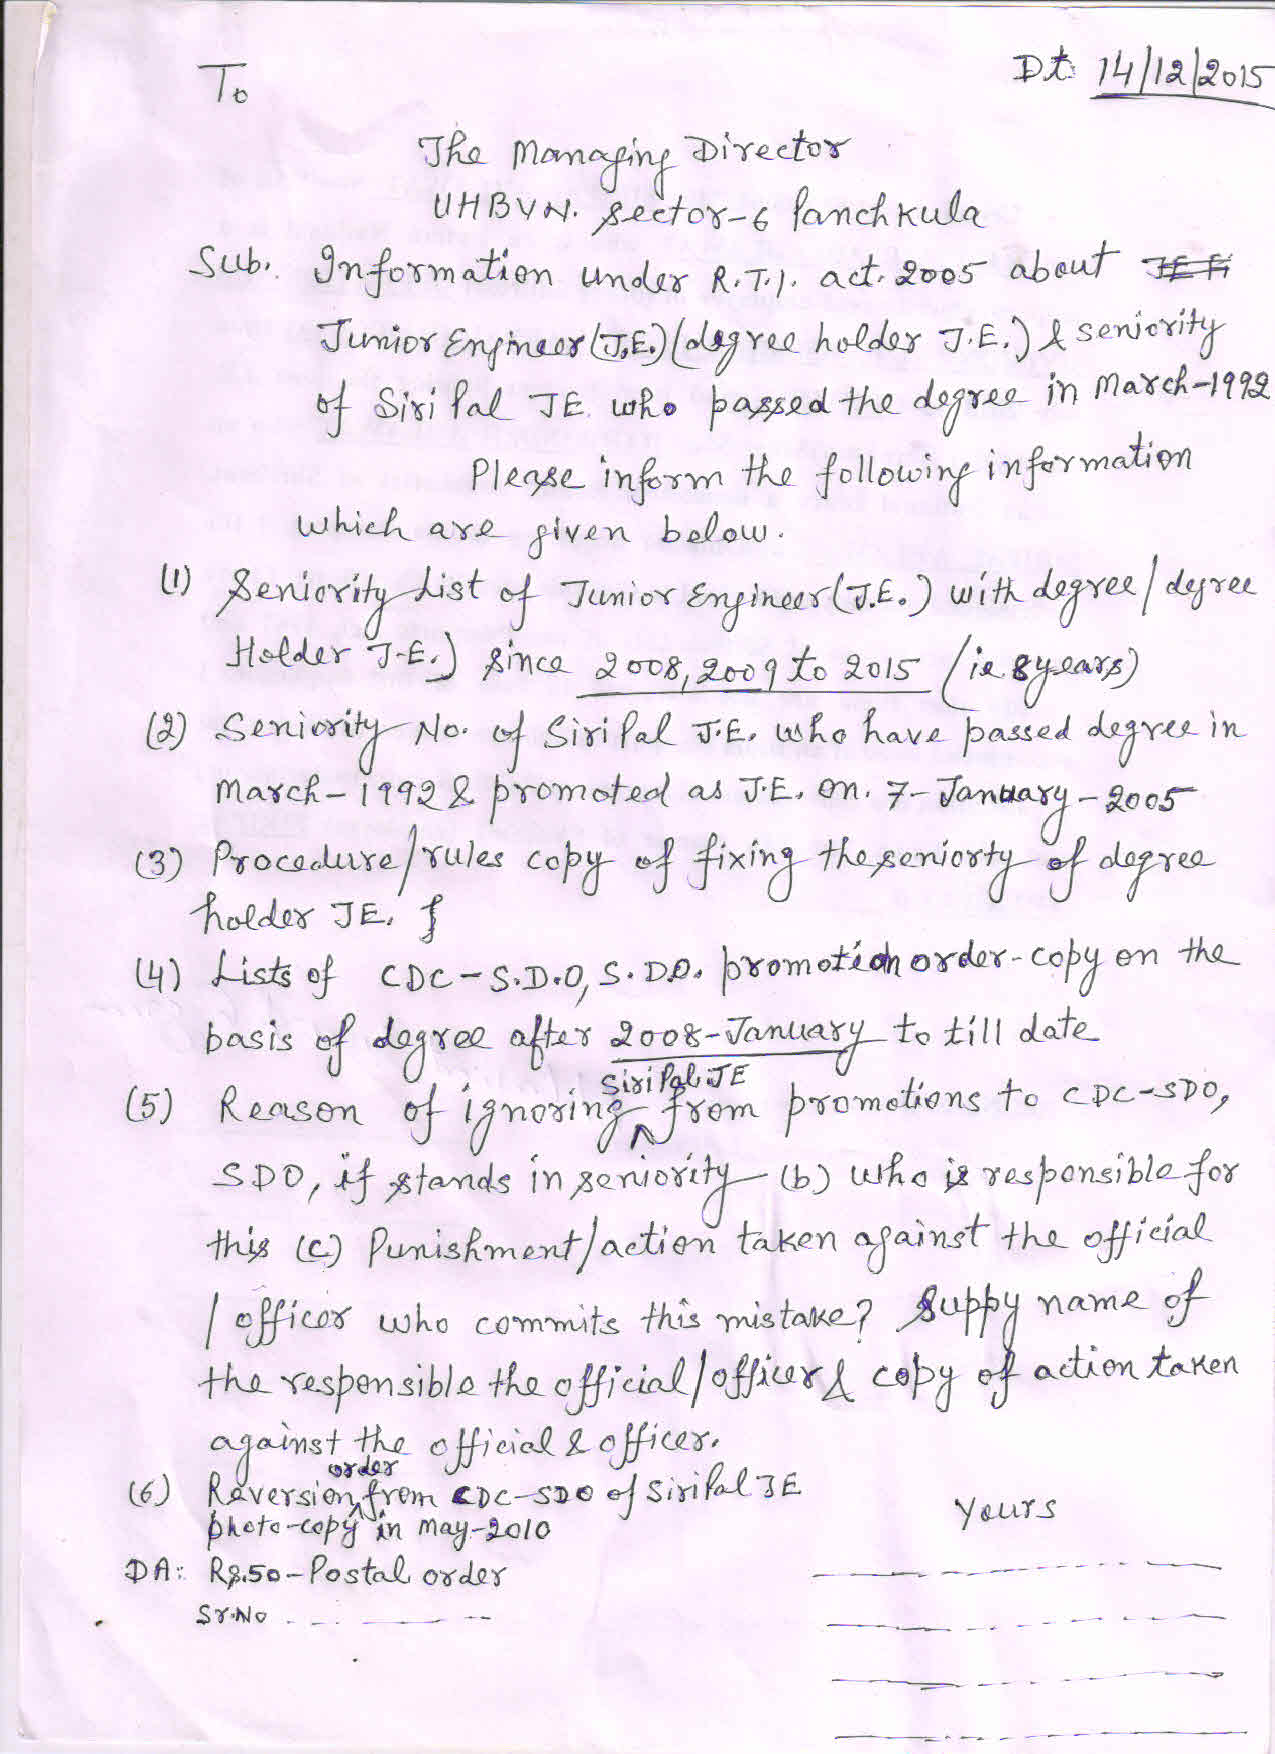 Dt 14/12/2015
To
The Managing Director
UHBVN. Sector-6 Panchkula
Sub. Information under R.T.I. act. 2005 about
Junior Engineer (J.E.) (degree holder J.E.) & seniority
of Siri Pal JE who passed the degree in March-1992
Please inform the following information
which are given below.
(1) Seniority List of Junior Engineer (J.E.) with degree / degree
Holder J.E.) since 2008, 2009 to 2015 (ie 8 years)
(2) Seniority No. of Siri Pal J.E. who have passed degree in
March-1992 & promoted as J.E. on. 7-January-2005
(3) Procedure/rules copy of fixing the seniorty of degree
holder JE.
(4) Lists of CDC-S.D.O, S.D.O. promotion order-copy on the
basis of degree after 2008-January to till date
(5) Reason of ignoring Siri Pal JE from promotions to CDC-SDO,
SDO, if stands in seniority (b) who is responsible for
this (c) Punishment/action taken against the official
/ officer who commits this mistake? Suppy name of
the responsible the official/officer & copy of action taken
against the official & officer.
(6) Reversion order from CDC-SDO of Siri Pal JE
photo-copy in May-2010
Yours
DA: Rs.50-Postal order
Sr.No